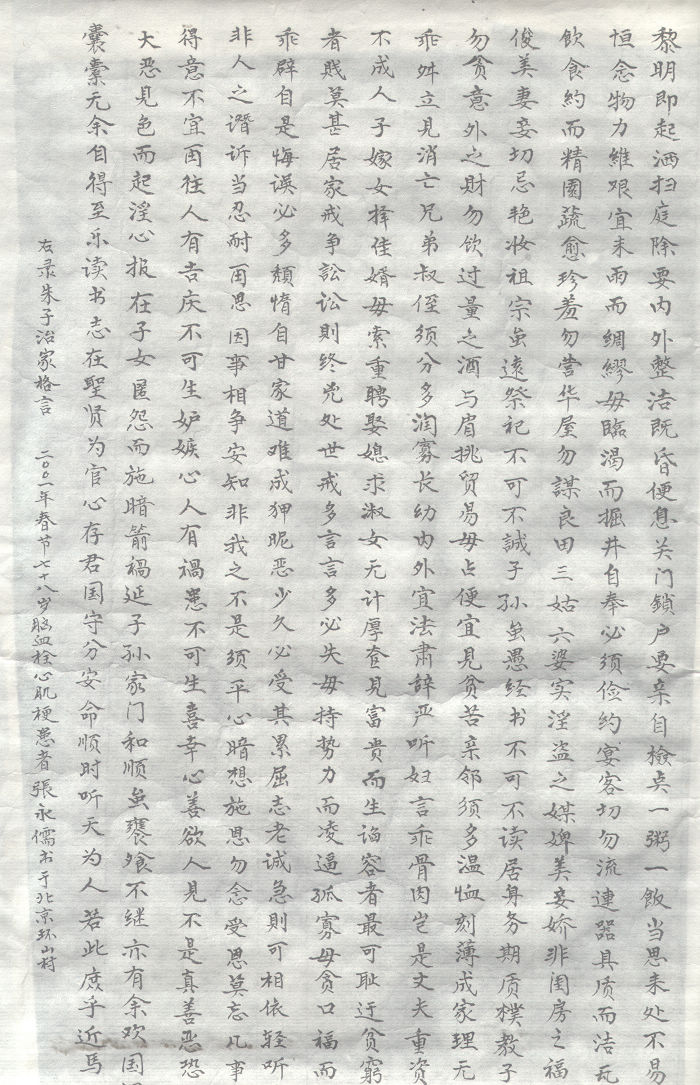 黎明即起洒扫庭除要内外整洁既昏便息关门鎖户要亲自檢点一粥一飯当思来处不易
恒念物力維艰宜未雨而綢繆毋臨渴而掘井自奉必须俭约宴客切勿流連器具质而洁瓦
飲食約而精園蔬愈珍羞勿营华屋勿謀良田三姑六婆实淫盗之媒婢美妾娇非闺房之福
俊美妻妾切忌艳妆祖宗虽遠祭祀不可不誠子孙虽愚经书不可不读居身务期质樸教子
勿贪意外之財勿饮过量之酒与肩挑贸易毋占便宜見貧苦亲邻须多温恤刻薄成家理无
乖舛立見消亡兄弟叔侄须分多润寡长幼内外宜法肃辞严听妇言乖骨肉岂是丈夫重资
不成人子嫁女择佳婿毋索重聘娶媳求淑女无计厚奁見富貴而生谄容者最可耻迂貧窮
者贱莫甚居家戒争訟讼則终凶处世戒多言言多必失毋持势力而凌逼孤寡毋貪口福而
乖辟自是悔误必多頹惰自甘家道难成狎昵恶少久必受其累屈志老诚急則可相依轻听
非人之譖诉当忍耐再思因事相争安知非我之不是须平心暗想施恩勿念受恩莫忘凡事
得意不宜再往人有吉庆不可生妒嫉心人有禍患不可生喜幸心善欲人見不是真善恶恐
大恶見色而起淫心报在子女匿怨而施暗箭禍延子孙家门和顺虽饔飧不继亦有余欢国
囊橐无余自得至乐读书志在聖贤为官心存君国守分安命顺时听天为人若此庶乎近焉
右录朱子治家格言 二〇〇一年春节七十八岁脑血栓心肌梗患者張永儒书于北京环山村